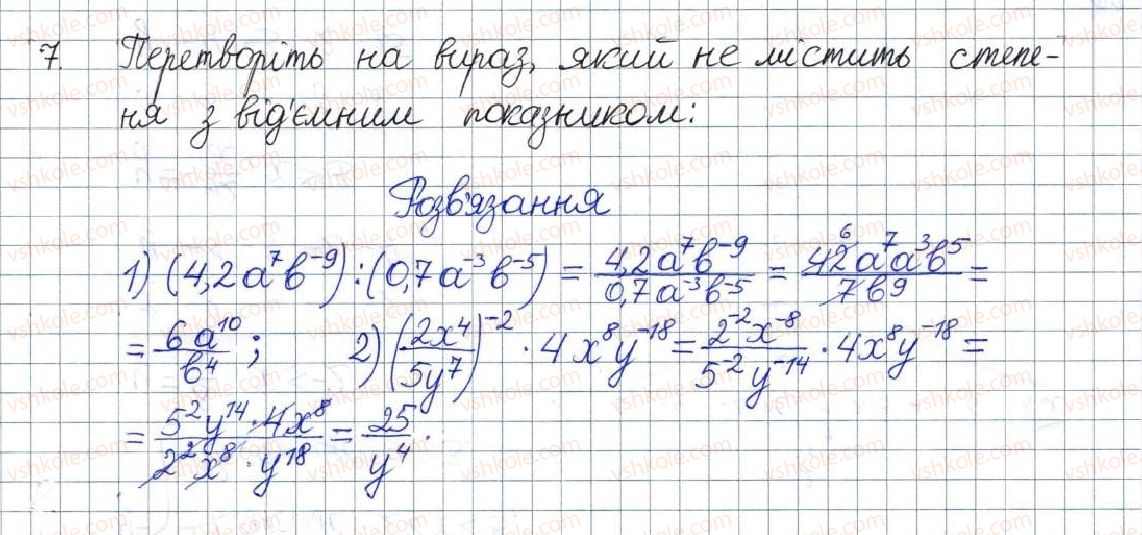 7. Перетворіть на вираз, який не містить степе-
ня з від'ємним показником:
Розв'язання
1) (4,2a⁷b⁻⁹):(0,7a⁻³b⁻⁵) = 4,2a⁷b⁻⁹/0,7a⁻³b⁻⁵ = 42⁶a⁷a³b⁵/7b⁹ =
= 6a¹⁰/b⁴; 2) (2x⁴/5y⁷)⁻² · 4x⁸y⁻¹⁸ = 2⁻²x⁻⁸/5⁻²y⁻¹⁴ · 4x⁸y⁻¹⁸ =
= 5²y¹⁴·4x⁸/2²x⁸·y¹⁸ = 25/y⁴.
vshkole.com